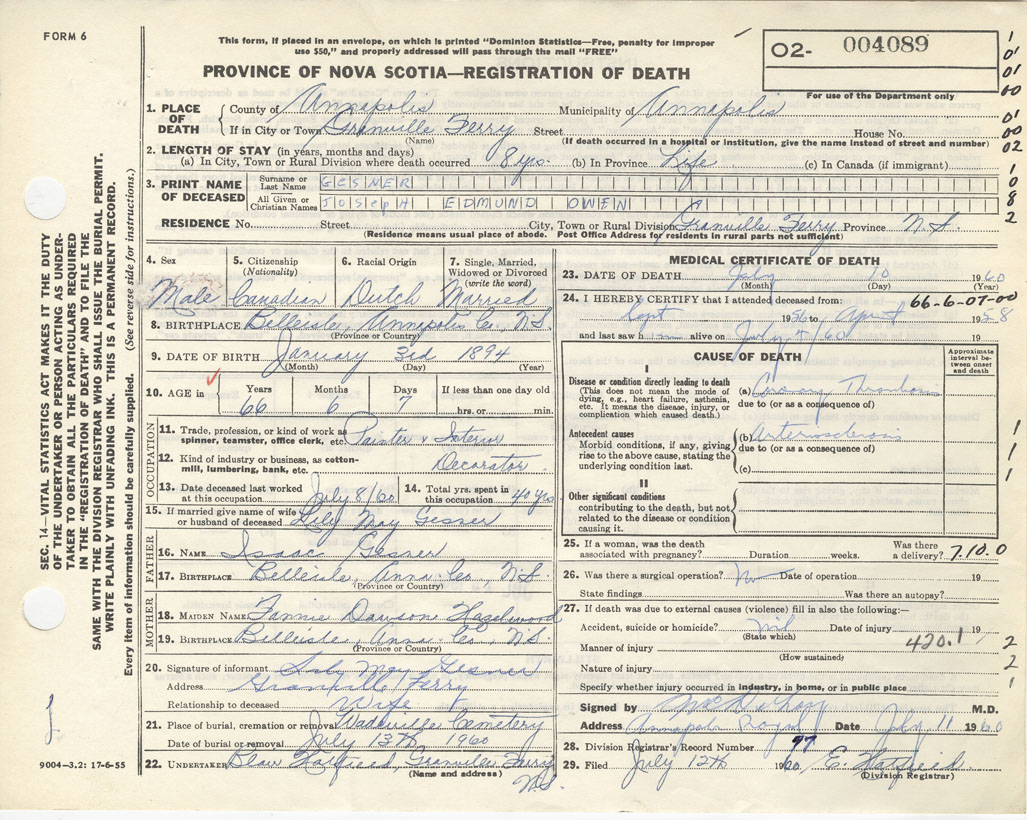 FORM 6
This form, if placed in an envelope, on which is printed "Dominion Statistics—Free, penalty for improper
use $50," and properly addressed will pass through the mail "FREE"
PROVINCE OF NOVA SCOTIA—REGISTRATION OF DEATH
02- 004089
For use of the Department only
1. PLACE OF DEATH County of Annapolis Municipality of Annapolis
If in City or Town Granville Ferry Street House No.
(Name) (If death occurred in a hospital or institution, give the name instead of street and number)
2. LENGTH OF STAY (in years, months and days)
(a) In City, Town or Rural Division where death occurred 8 yrs. (b) In Province Life (c) In Canada (if immigrant)
3. PRINT NAME OF DECEASED Surname or Last Name GESNER
All Given or Christian Names JOSEPH EDMUND OWEN
RESIDENCE No. Street City, Town or Rural Division Granville Ferry Province N.S.
(Residence means usual place of abode. Post Office Address for residents in rural parts not sufficient)
4. Sex Male
5. Citizenship (Nationality) Canadian
6. Racial Origin Dutch
7. Single, Married, Widowed or Divorced (write the word) Married
8. BIRTHPLACE Belleisle, Annapolis Co., N.S.
(Province or Country)
9. DATE OF BIRTH January 3rd 1894
(Month) (Day) (Year)
10. AGE in Years 66 Months 6 Days 7 If less than one day old hrs. or min.
OCCUPATION
11. Trade, profession, or kind of work as spinner, teamster, office clerk, etc. Painter & Interior
12. Kind of industry or business, as cotton-mill, lumbering, bank, etc. Decorator
13. Date deceased last worked at this occupation July 8/60 14. Total yrs. spent in this occupation 40 yrs
15. If married give name of wife or husband of deceased Lily May Gesner
FATHER
16. NAME Isaac Gesner
17. BIRTHPLACE Belleisle, Anna. Co., N.S.
(Province or Country)
MOTHER
18. MAIDEN NAME Fannie Dawson Hazelwood
19. BIRTHPLACE Belleisle, Anna. Co., N.S.
(Province or Country)
20. Signature of informant Lily May Gesner
Address Granville Ferry
Relationship to deceased Wife
21. Place of burial, cremation or removal Wadeville Cemetery
Date of burial or removal July 13th 1960
22. UNDERTAKER Blair Hatfield, Granville Ferry
(Name and address) N.S.
MEDICAL CERTIFICATE OF DEATH
23. DATE OF DEATH July 10 1960
(Month) (Day) (Year)
24. I HEREBY CERTIFY that I attended deceased from: 66-6-07-00
Sept 1956 to April 1958
and last saw h alive on July 5/60 19
CAUSE OF DEATH
Approximate interval between onset and death
I
Disease or condition directly leading to death
(This does not mean the mode of dying, e.g., heart failure, asthenia, etc. It means the disease, injury, or complication which caused death.)
(a) Coronary Thrombosis
due to (or as a consequence of)
Antecedent causes
Morbid conditions, if any, giving rise to the above cause, stating the underlying condition last.
(b) Arteriosclerosis
due to (or as a consequence of)
(c)
II
Other significant conditions
contributing to the death, but not related to the disease or condition causing it.
25. If a woman, was the death associated with pregnancy? Duration weeks. Was there a delivery? 7.10.0
26. Was there a surgical operation? No Date of operation 19
State findings Was there an autopsy?
27. If death was due to external causes (violence) fill in also the following:—
Accident, suicide or homicide? nil Date of injury 19
(State which)
Manner of injury 420.1
(How sustained)
Nature of injury
Specify whether injury occurred in industry, in home, or in public place
Signed by M.D.
Address Annapolis Royal Date July 11 1960
28. Division Registrar's Record Number 97
29. Filed July 12th 1960 E. Hatfield
(Division Registrar)
SEC. 14—VITAL STATISTICS ACT MAKES IT THE DUTY
OF THE UNDERTAKER OR PERSON ACTING AS UNDER-
TAKER TO OBTAIN ALL THE PARTICULARS REQUIRED
IN THE "REGISTRATION OF DEATH" AND TO FILE THE
SAME WITH THE DIVISION REGISTRAR WHO SHALL ISSUE THE BURIAL PERMIT.
WRITE PLAINLY WITH UNFADING INK. THIS IS A PERMANENT RECORD.
Every item of information should be carefully supplied. (See reverse side for instructions.)
9004—3.2: 17-6-55
1
01
01
00
01
00
02
1
0
8
2
1
1
1
2
2
1